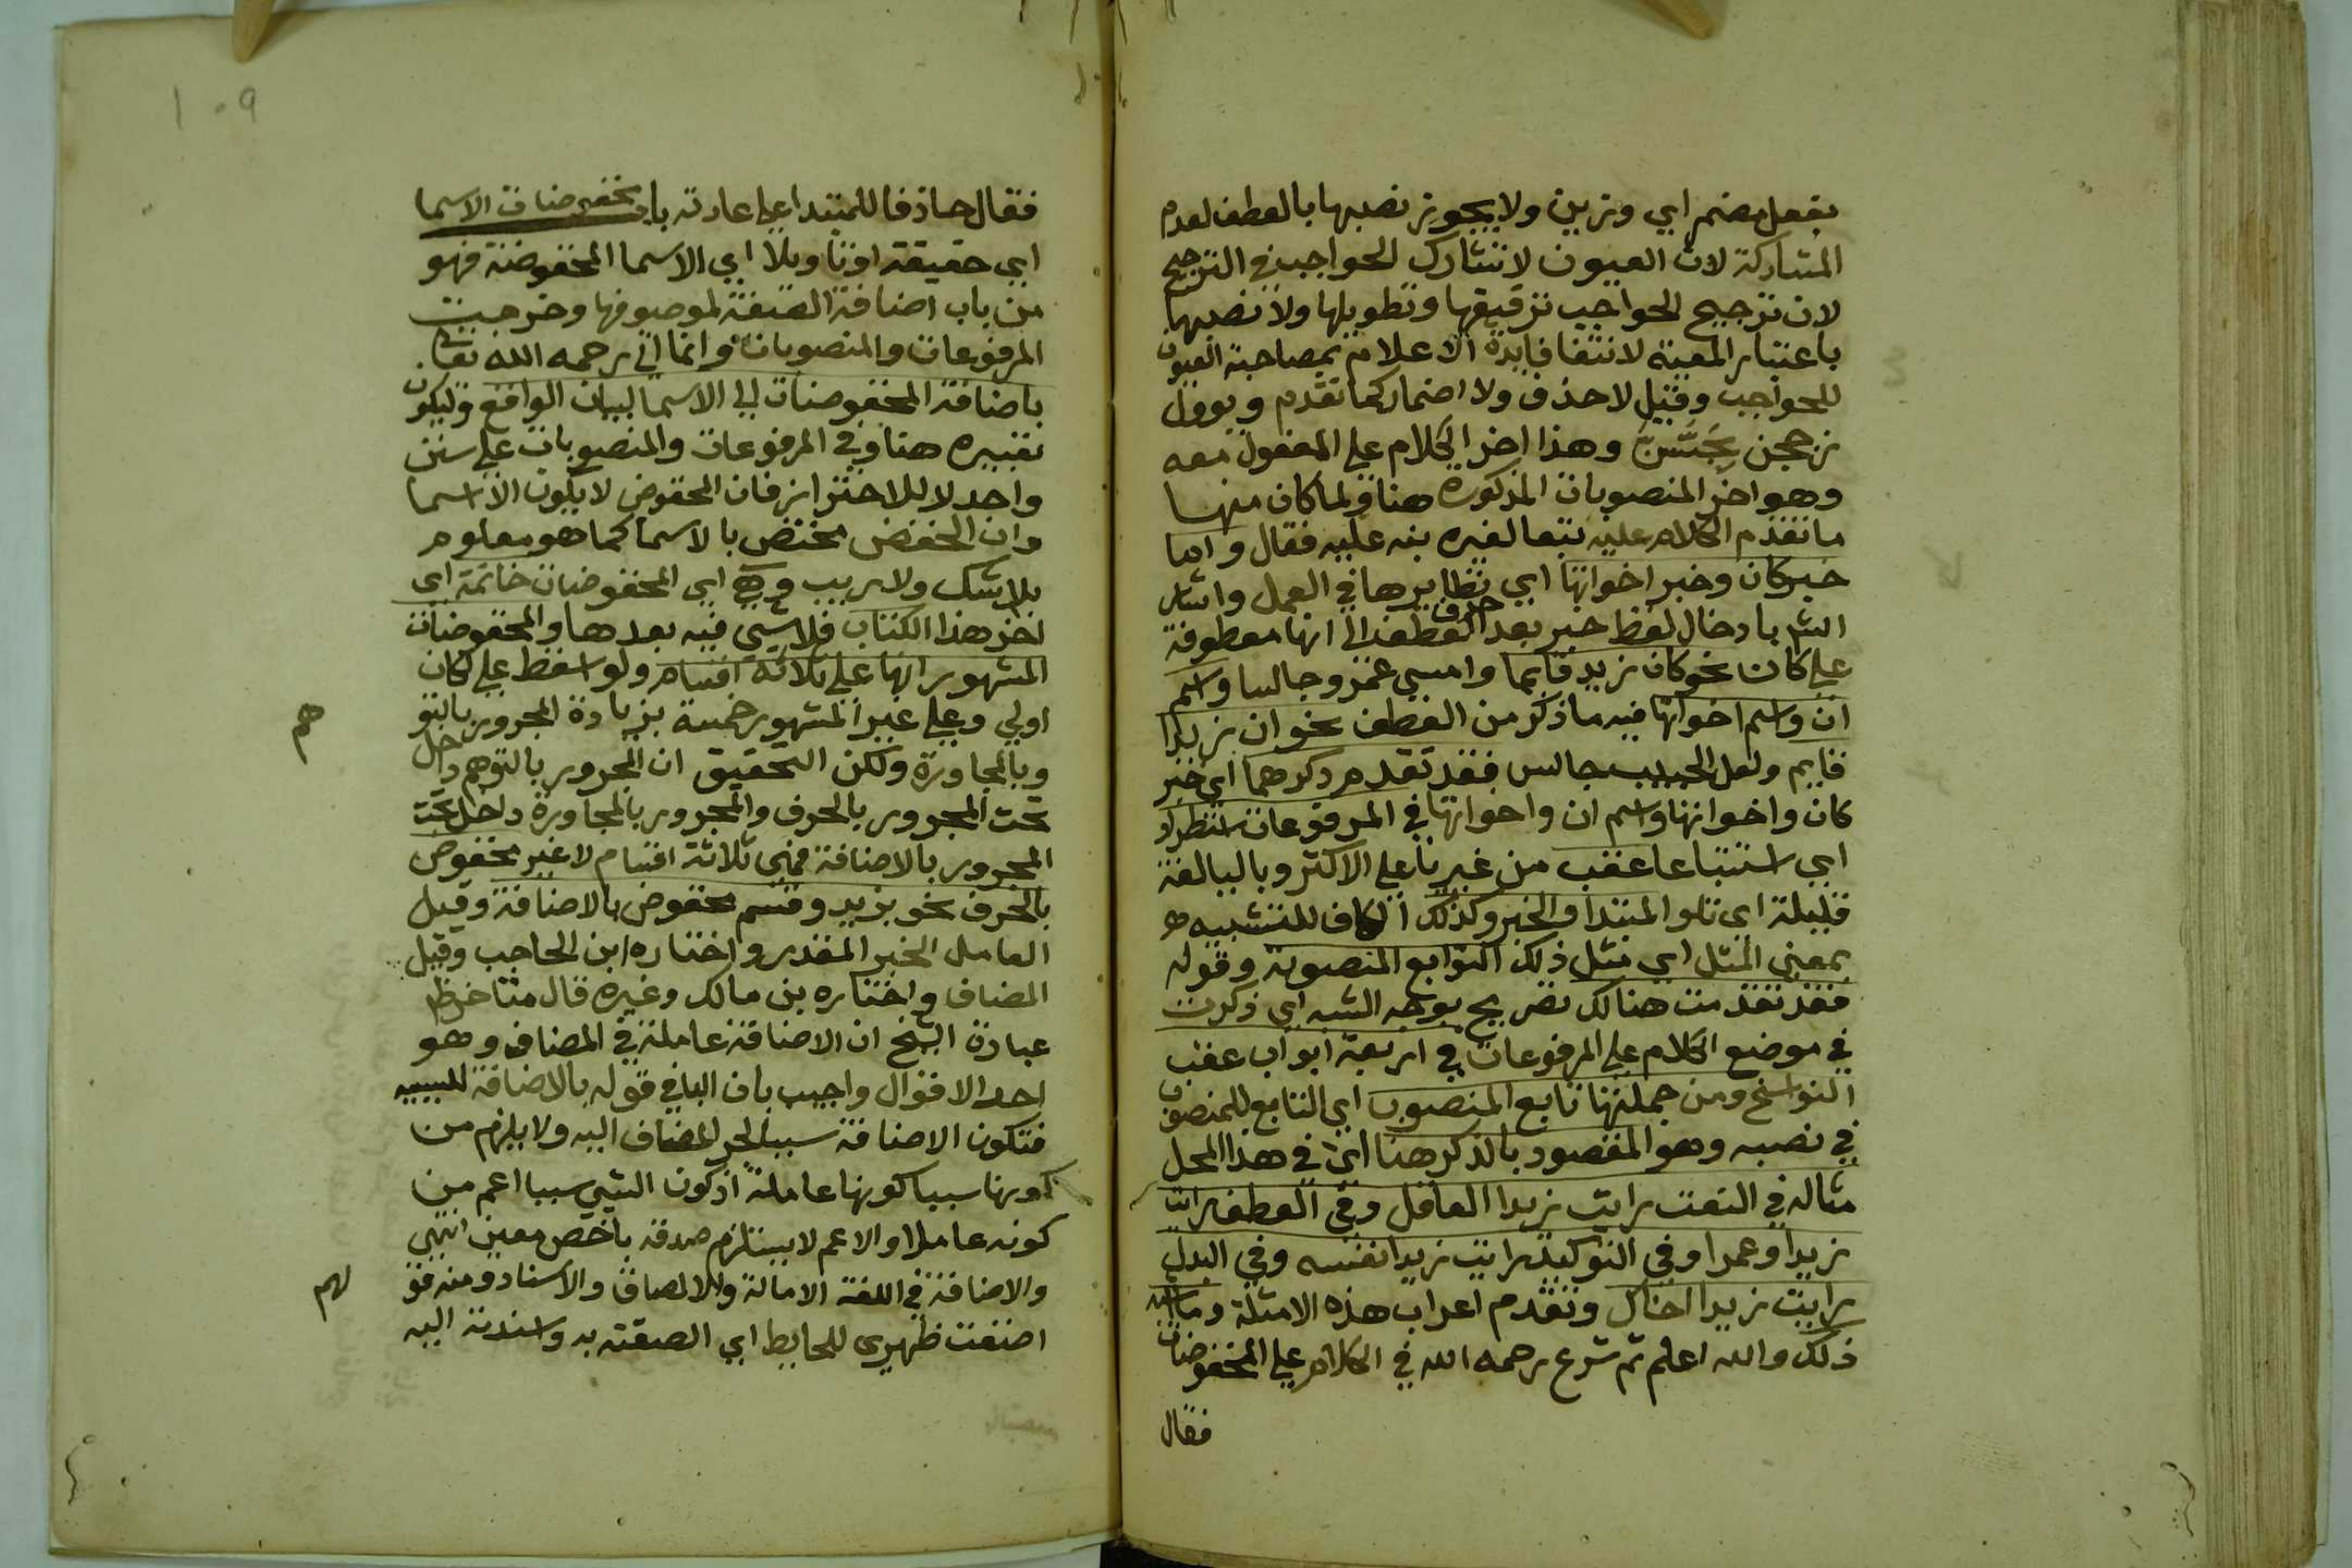 بفعل مضمر اي وزين ولا يجوز نصبها بالعطف لعدم
المشاركة لان العيون لا تشارك الحواجب في الترجيح
لان ترجيح الحواجب ترقيقها وتطويلها ولا نصبهما
باعتبار المعية لانتفا فايدة الاعلام بمصاحبة العيون
للحواجب وقيل لا حذف ولا اضمار كما تقدم ويوول
زججن بحَسَّنَّ وهذا اخر الكلام على المفعول معه
وهو اخر المنصوبات المذكورة هنا ولما كان منها
ما تقدم الكلام عليه تبعا لغيره نبه عليه فقال واما
خبر كان وخبر اخواتها اي نظايرها في العمل واشار
الشر بادخال لفظ خبر بعد حرف العطف الى انها معطوفة
على كان نحو كان زيد قايما وامسى عمرو جالسا واسم
ان واسم اخواتها فيه ما ذكر من العطف نحو ان زيدا
قايم ولعل الحبيب جالس فقد تقدم ذكرهما اي خبر
كان واخواتها واسم ان واخواتها في المرفوعات استطرادا
اي استتباعا عقب من غير يا على الاكثر وباليا لغة
قليلة اي تلو المبتدا والخبر وكذلك الكاف للتشبيه
بمعنى المثل اي مثل ذلك التوابع المنصوبة وقوله
فقد تقدمت هنالك تصريح بوجه الشبه اي ذكرت
في موضع الكلام على المرفوعات في اربعة ابواب عقب
النواسخ ومن جملتها تابع المنصوب اي التابع للمنصوب
في نصبه وهو المقصود بالذكر هنا اي في هذا المحل
مثاله في النعت رايت زيدا العاقل وفي العطف رايت
زيدا وعمرا وفي التوكيد رايت زيدا نفسه وفي البدل
رايت زيدا اخاك وتقدم اعراب هذه الامثلة وما اشبه
ذلك والله اعلم ثم شرع رحمه الله في الكلام على المخفوضات
فقال
١٠٩
فقال حاذفا للمبتدا على عادته باب مخفوضات الاسما
اي حقيقة او تاويلا اي الاسما المخفوضة فهو
من باب اضافة الصفة لموصوفها وخرجت
المرفوعات والمنصوبات وانما اتى رحمه الله تعالى
باضافة المخفوضات الى الاسما لبيان الواقع وليكون
تعبيره هنا وفي المرفوعات والمنصوبات على سنن
واحد لا للاحتراز فان المخفوض لا يكون الا اسما
وان الخفض مختص بالاسما كما هو معلوم
بلا شك ولا ريب وهي اي المخفوضات خاتمة اي
اخر هذا الكتاب فلا شي فيه بعدها والمخفوضات
المشهور انها على ثلاثة اقسام ولو اسقط على لكان
اولى وعلى غير المشهور خمسة بزيادة المجرور بالتو
هم
وبالمجاورة ولكن التحقيق ان المجرور بالتوهم داخل
تحت المجرور بالحرف والمجرور بالمجاورة داخل تحت
المجرور بالاضافة فهي ثلاثة اقسام لا غير مخفوض
بالحرف نحو بزيد وقسم مخفوض بالاضافة وقيل
العامل الحبر المقدر واختاره ابن الحاجب وقيل
المضاف واختاره بن مالك وغيره قال
عبارة الشيخ ان الاضافة عاملة في المضاف وهو
احد الاقوال واجيب بان البا في قوله بالاضافة للسببيه
فتكون الاضافة سببا لجر المضاف اليه ولا يلزم من
كونها سببا كونها عاملة اذ كون الشي سببا اعم من
كونه عاملا والاعم لا يستلزم صدقه باخص معين انتهى
والاضافة في اللغة الامالة والالصاق والاسناد ومنه قو
لهم
اضفت ظهري للحايط اي الصقته به واسندته اليه